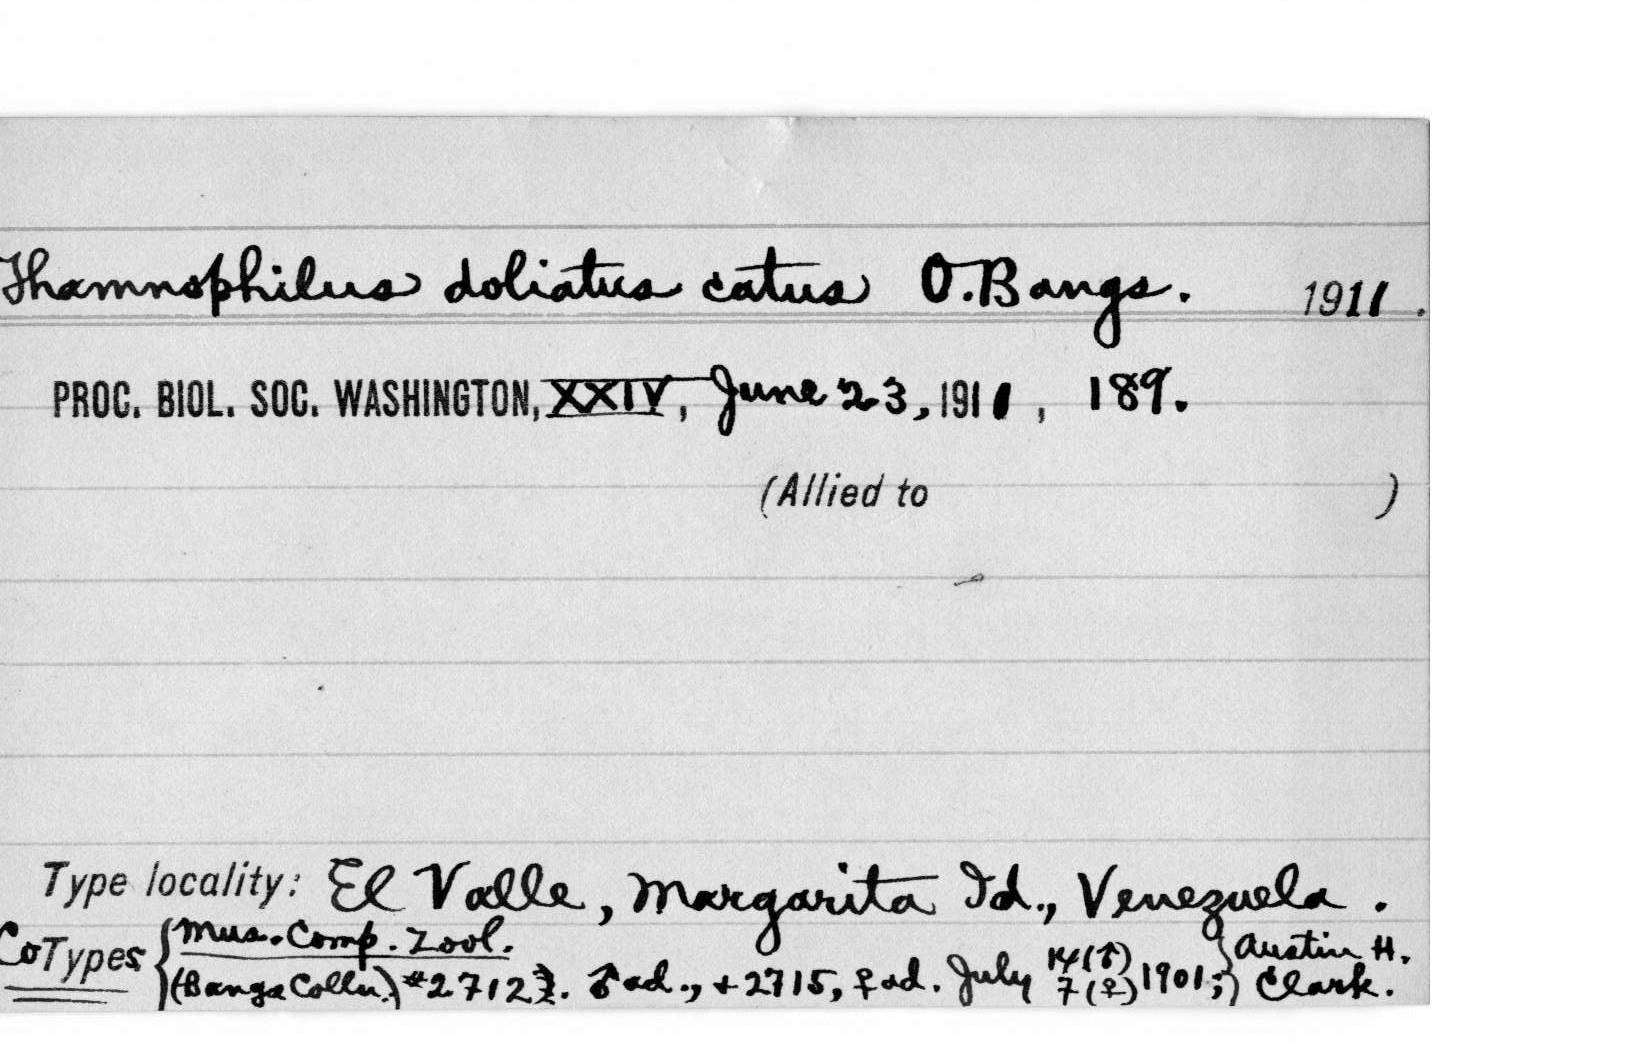 Thamnophilus doliatus catus O. Bangs. 1911.
PROC. BIOL. SOC. WASHINGTON, XXIV, June 23, 1911, 189.
(Allied to )
Type locality: El Valle, Margarita Id., Venezuela.
CoTypes { Mus. Comp. Zool. 14(♂) } Austin H.
(Bangs Colln.) #2712. ♂ad., + 2715, ♀ad. July 7(♀) 1901; Clark.